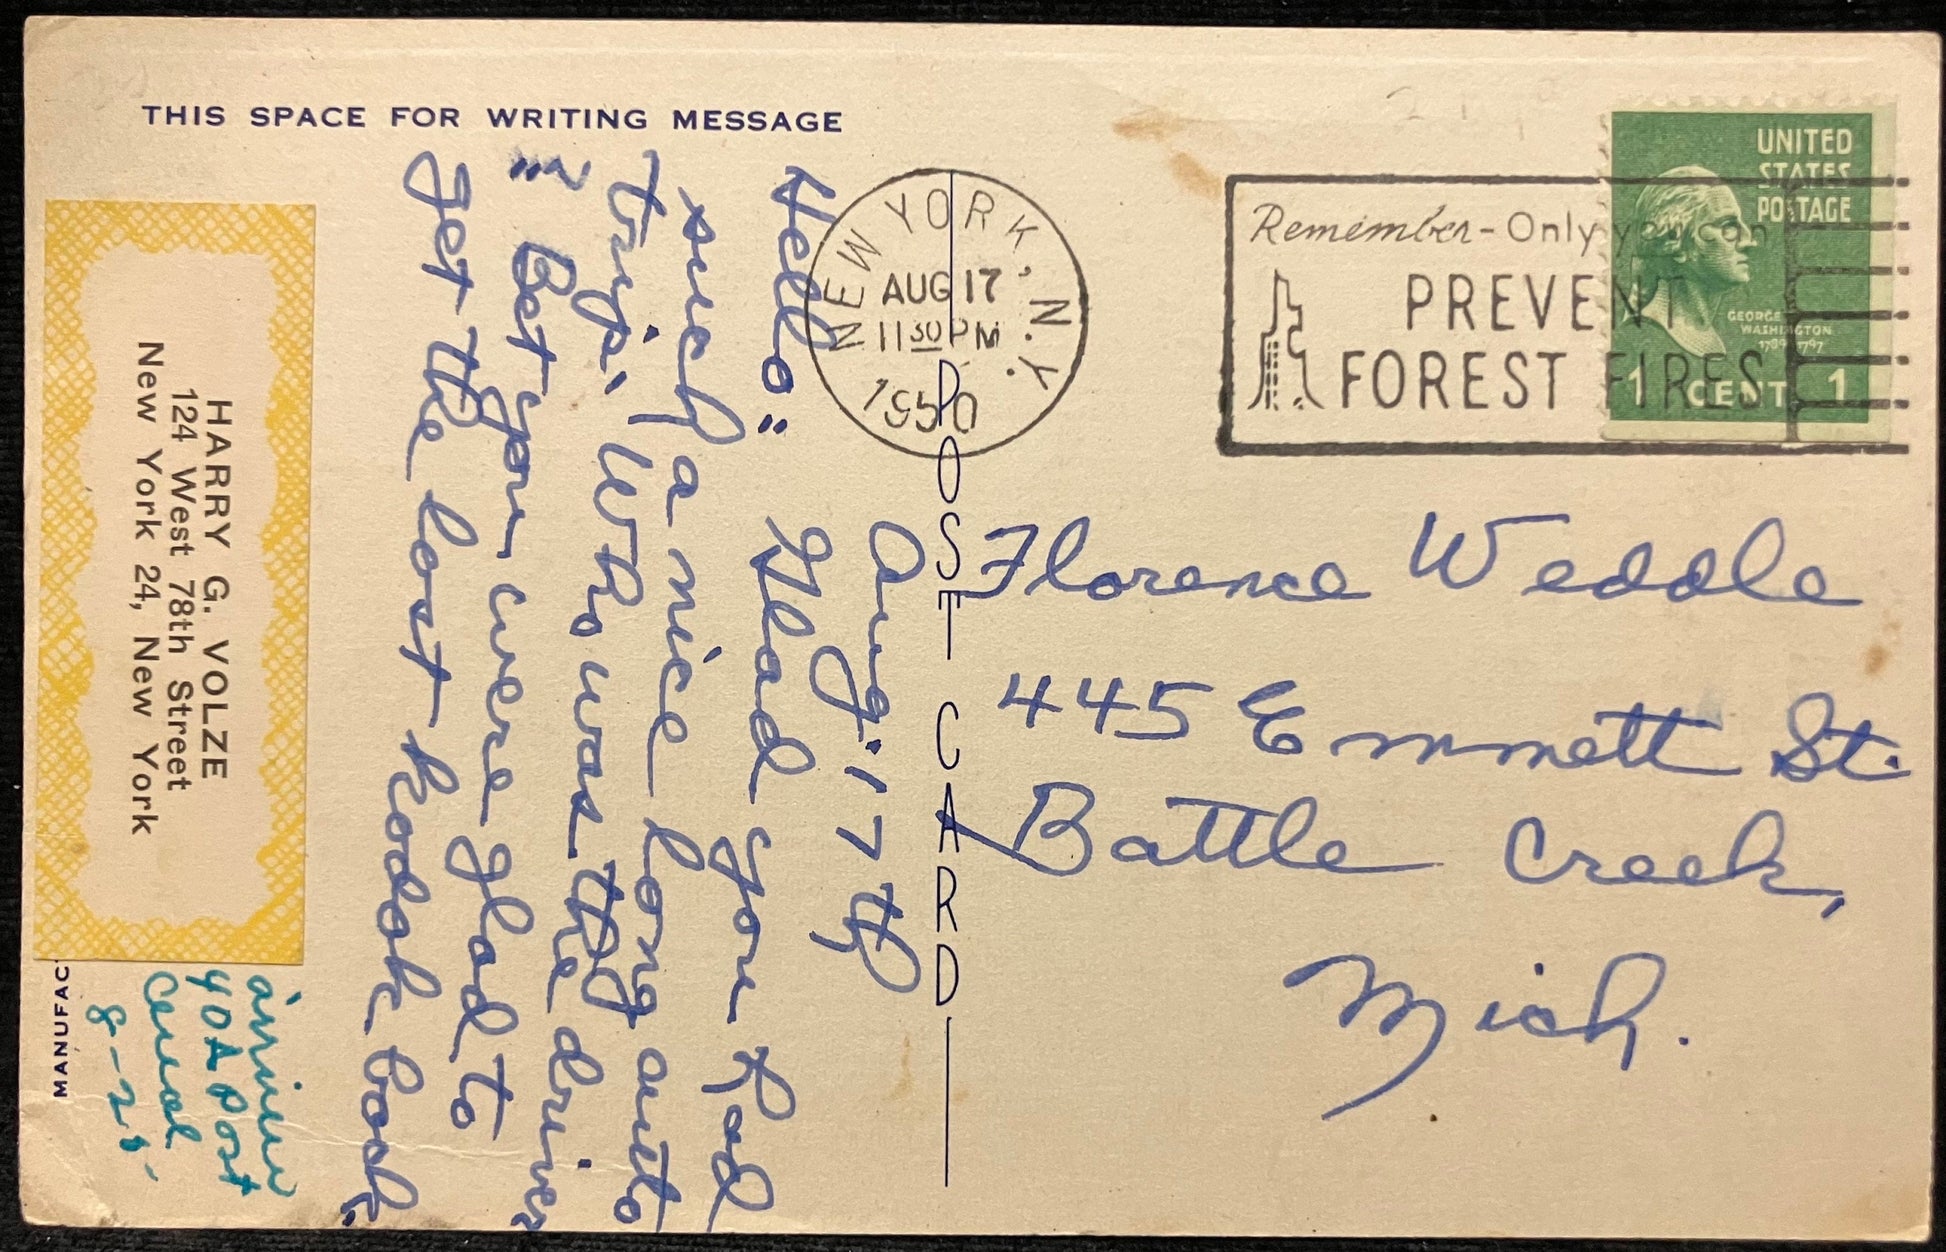 THIS SPACE FOR WRITING MESSAGE
Aug. 17th
Hello:: Glad you had
such a nice long auto
trip. Who was the driver
"" Bet you were glad to
get the lost kodak back.
HARRY G. VOLZE
124 West 78th Street
New York 24, New York
MANUFAC
POST
card
8-2
NEW YORK, N.Y.
AUG 17
11 30 PM
1950
POST CARD
Remember-Only you can
PREVENT
FOREST FIRES
UNITED
STATES
POSTAGE
GEORGE
WASHINGTON
1789 1797
1 CENT 1
Florence Weddle
445 Emmett St.
Battle Creek,
Mich.